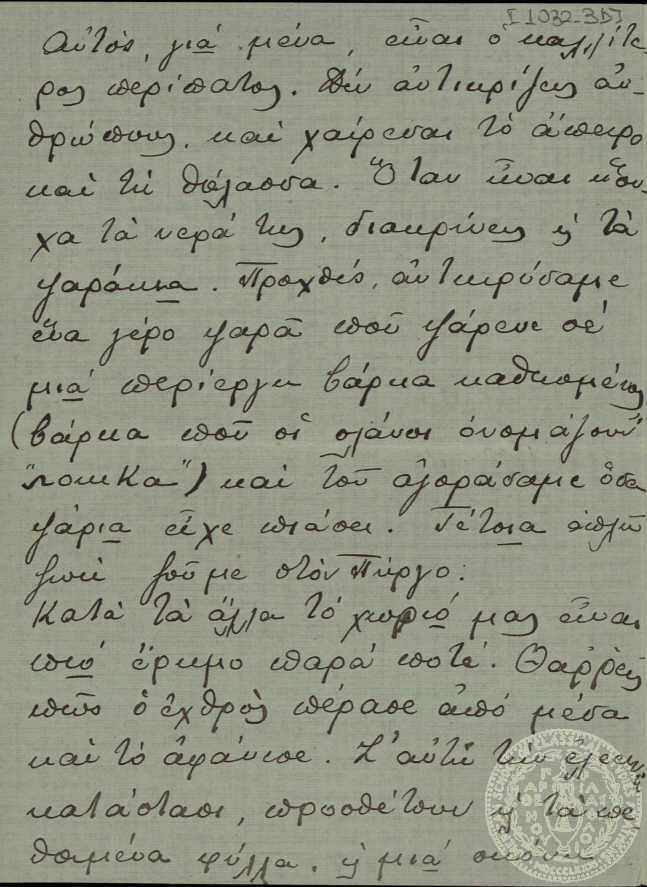 [1032-3β]
Αὐτός, γιά μένα, εἶναι ὁ καλλίτε-
ρος περίπατος. Δέν ἀντικρίζεις ἀν-
θρώπους, καί χαίρεσαι τό ἄπειρο
καί τή θάλασσα. Ὅταν εἶναι ἥσυ-
χα τά νερά της, διακρίνεις κ τά
ψαράκια. Προχθές, ἀντικρύσαμε
ἕνα γέρο ψαρᾶ ποῦ ψάρευε σέ
μιά περίεργη βάρκα καθισμένος
(βάρκα ποῦ οἱ ὀνομάζουν
"ποικκα") καί τοῦ ἀγοράσαμε ὅσα
ψάρια εἶχε πιάσει. Τέτοια ἁπλῆ
ζωή ζοῦμε στόν Πύργο.
Κατά τά ἄλλα τό χωριό μας εἶναι
πιό ἔρημο παρά ποτέ. Θαρρεῖς
πῶς ὁ ἐχθρός πέρασε ἀπό μέσα
καί τό ἀφάνισε. Σ' αὐτή τήν ἐλεεινή
κατάσταση, προσθέτουν κ τά πε-
θαμένα φύλλα, κ μιά